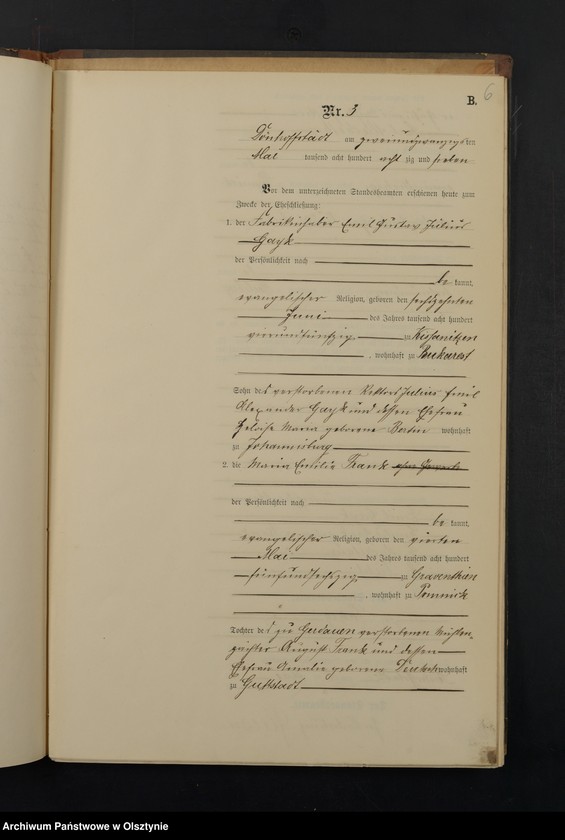 6
B.
Nr. 3
Dönhoffstädt am zweiundzwanzigsten
Mai tausend acht hundert acht zig und sieben
Vor dem unterzeichneten Standesbeamten erschienen heute zum
Zwecke der Eheschließung:
1. der Fabrikinhaber Emil Gustav Julius
Gayk
der Persönlichkeit nach
be kannt,
evangelischer Religion, geboren den sechzehnten
Juni des Jahres tausend acht hundert
vierundfünfzig zu
, wohnhaft zu Bukarest
Sohn des verstorbenen Rektors Julius Emil
Alexander Gayk und dessen Ehefrau
Maria geborene wohnhaft
zu Johannisburg
2. die Maria Emilie Frank ohne Gewerbe
der Persönlichkeit nach
be kannt,
evangelischer Religion, geboren den vierten
Mai des Jahres tausend acht hundert
fünfundsechszig zu Graventhien
, wohnhaft zu Pomnick
Tochter des zu Gerdauen verstorbenen Mühlen-
pächter August Frank und dessen
Ehefrau Amalie geborene wohnhaft
zu Guttstadt
Archiwum Państwowe w Olsztynie